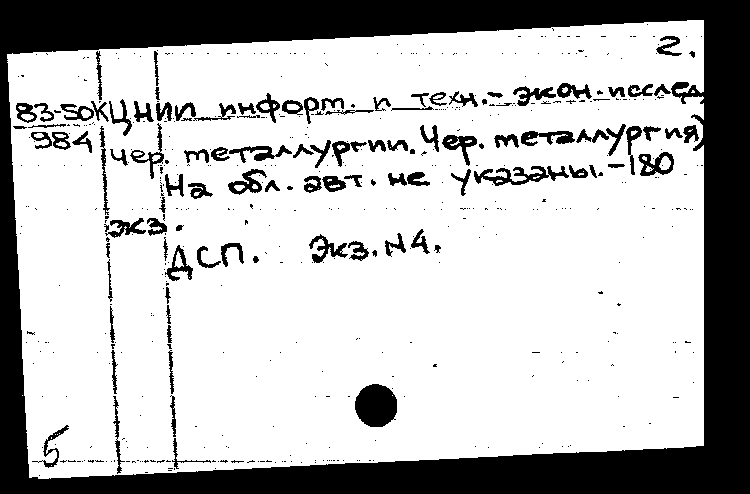 2.
83-50К ЦНИИ информ. и техн.-экон.исслед.
984 чер. металлургии. Чер. металлургия)
На обл. авт. не указаны.-180
экз.
ДСП. Экз.N4.
5